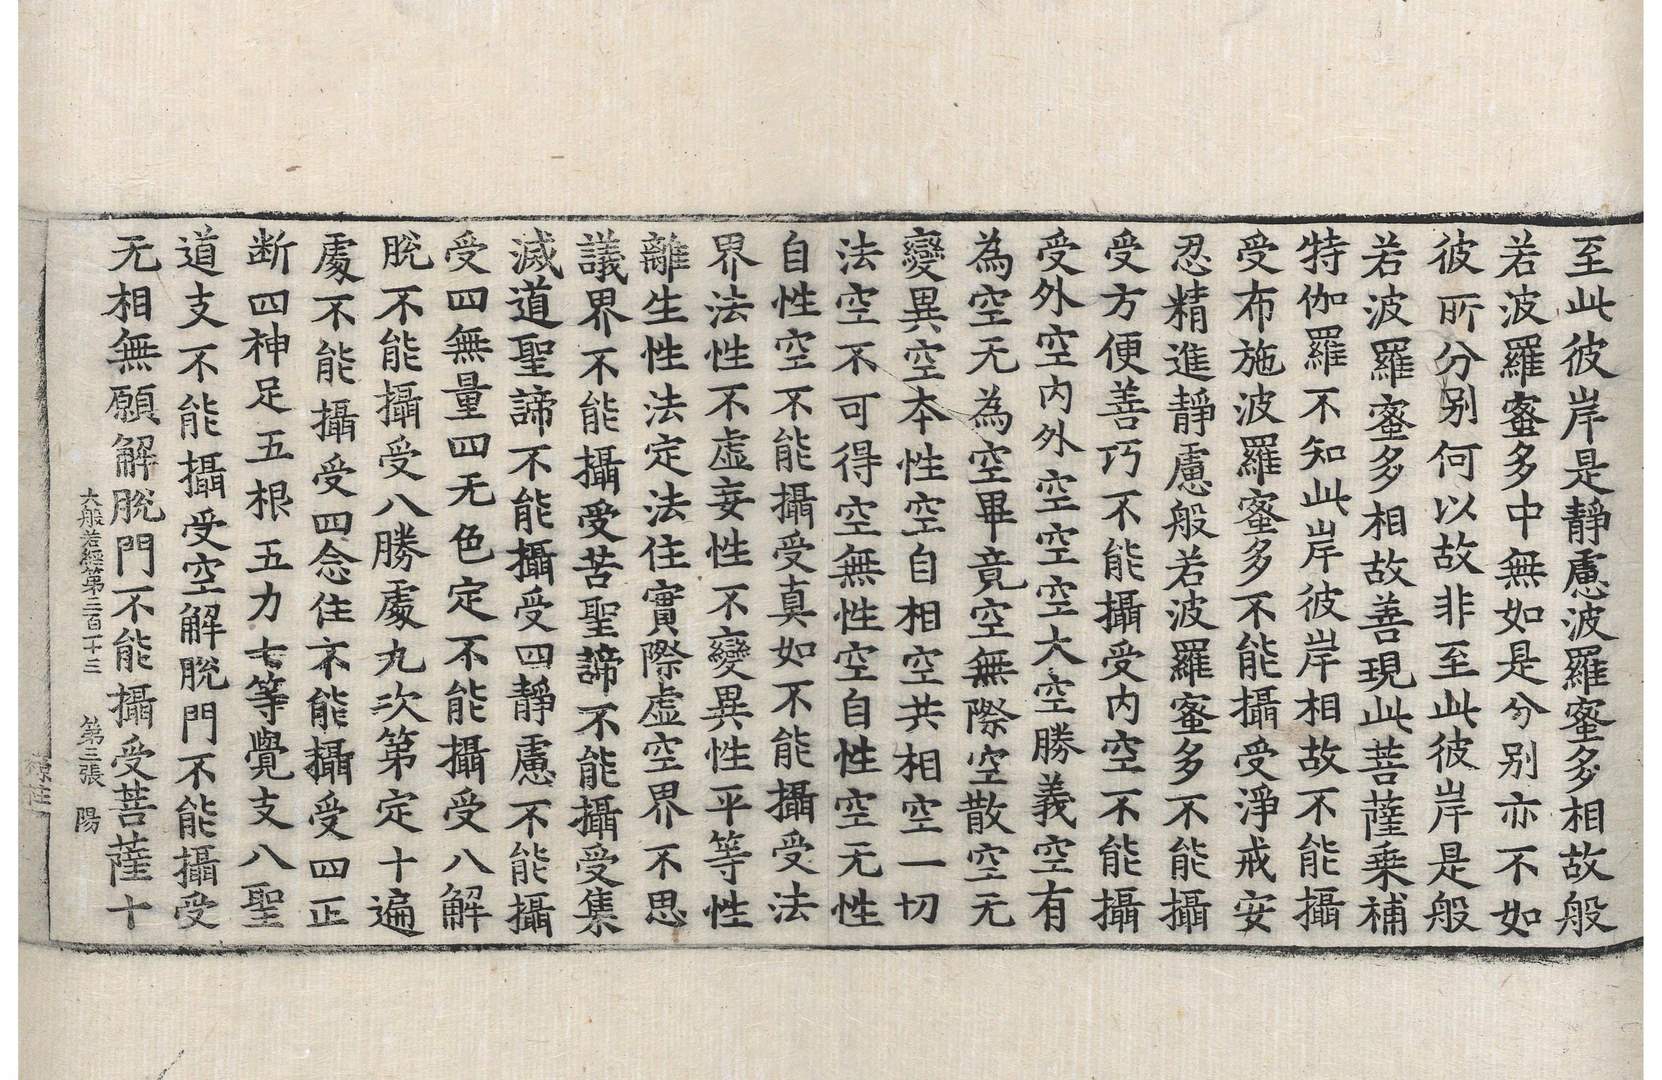 至此彼岸是靜慮波羅蜜多相故般
若波羅蜜多中無如是分別亦不如
彼所分别何以故非至此彼岸是般
若波羅蜜多相故善現此菩薩乗補
特伽羅不知此岸彼岸相故不能攝
受布施波羅蜜多不能攝受淨戒安
忍精進靜慮般若波羅蜜多不能攝
受方便善巧不能攝受内空不能攝
受外空内外空空空大空勝義空有
為空无為空畢竟空無際空散空无
變異空本性空自相空共相空一切
法空不可得空無性空自性空无性
自性空不能攝受真如不能攝受法
界法性不虛妄性不變異性平等性
離生性法定法住實際虛空界不思
議界不能攝受苦聖諦不能攝受集
滅道聖諦不能攝受四靜慮不能攝
受四無量四无色定不能攝受八解
脫不能攝受八勝處九次第定十遍
處不能攝受四念住不能攝受四正
断四神足五根五力七等覺支八聖
道支不能攝受空解脫門不能攝受
无相無願解脫門不能攝受菩薩十
大般若經第三百一十三 第三張 陽